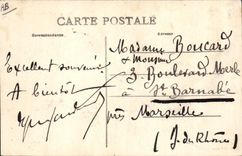 AB
CARTE POSTALE
Correspondance
Madame Boucard
& Monsieur
3. Boulevard Merle
à St Barnabé
près Marseille
(J. du Rhône)
Excellent souvenir
A bientôt